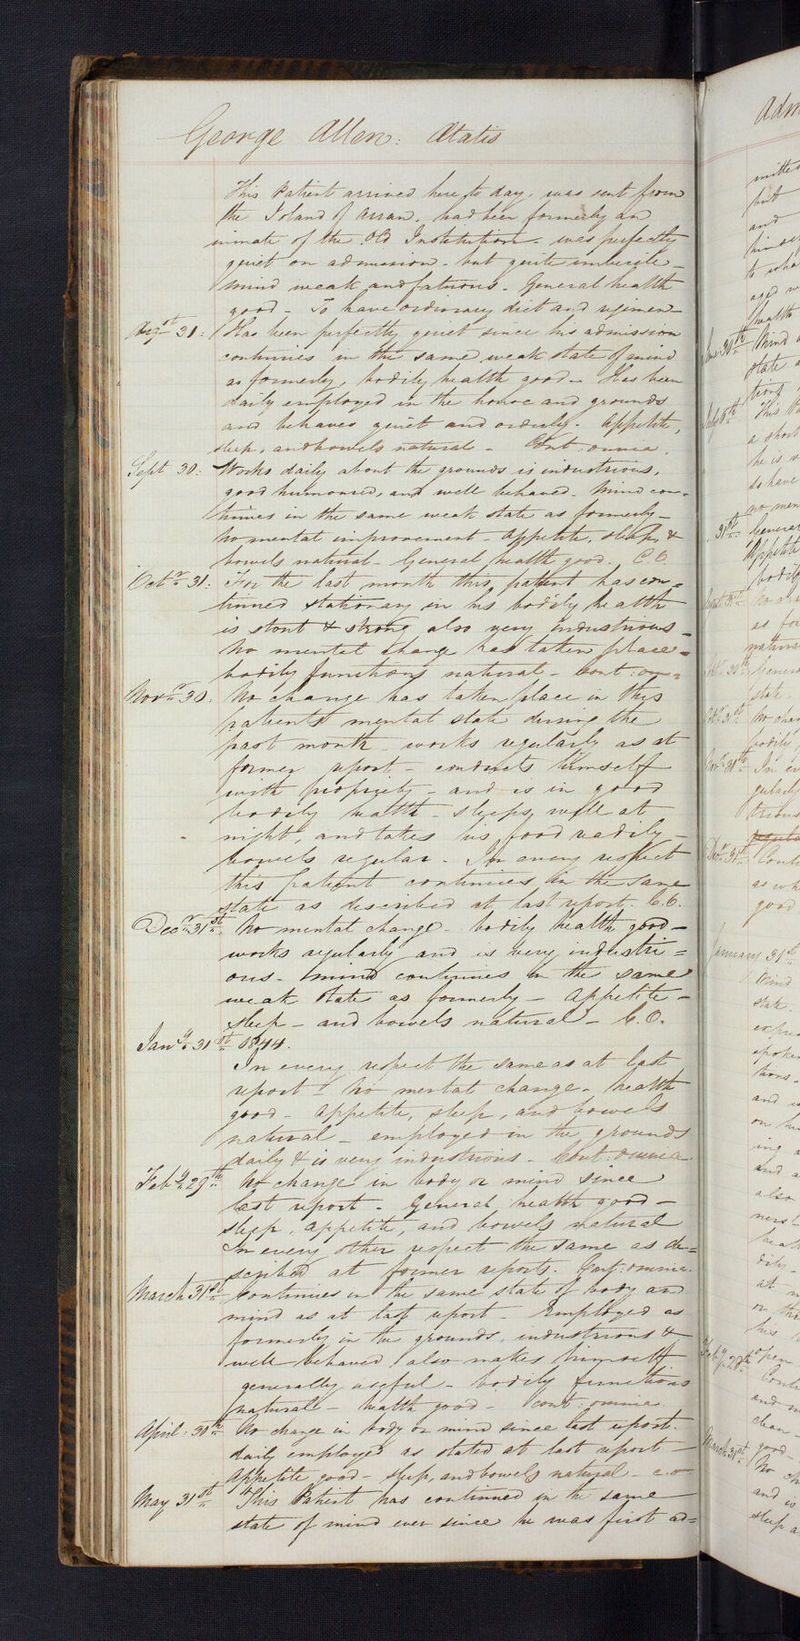 George Allen: Ætatis
This Patient arrived here to day, was sent from
the Island of Arran. had been formerly an
inmate of the Old Institution. was perfectly
quiet on admission - but quite imbecile -
mind weak and fatuous. General health
good - To have ordinary diet and regimen -
Augst 31: Has been perfectly quiet since his admission
continues in the same weak state of mind
as formerly, bodily health good - Has been
daily employed in the house and grounds
and behaves quiet and orderly. Appetite,
sleep, and bowels natural - Cont: omnia.
Sept 30: Works daily about the grounds is industrious,
good humoured, and well behaved. Mind con-
tinues in the same weak state as formerly -
no mental improvement - Appetite, sleep, &
bowels natural - General health good. C.O.
Octr 31: For the last month this patient has con=
tinued stationary in his bodily health
is stout & strong also very industrious -
No mental change has taken place =
bodily functions natural - Cont: om=
Novr 30. No change has taken place in this
patients mental state during the
past month - works regularly as at
former report - conducts himself
with propriety - and is in good
bodily health - sleeps well at
night, and takes his food readily -
bowels regular - In every respect
this patient continues in the same
state as described at last report. C.O.
Decr 31st. No mental change - bodily health good -
works regularly and is very industri=
ous - Mind continues in the same
weak state as formerly - Appetite -
sleep - and bowels natural - C.O.
Jany 31st 1844.
In every respect the same as at last
report - No mental change - health
good - appetite, sleep, and bowels
natural - employed in the grounds
daily & is very industrious - Cont: omnia
Feby 29th No change in body or mind since
last report - General health good -
sleep, appetite, and bowels natural
In every other respect the same as de=
scribed at former reports. Cont: omnia.
March 31st Continues in the same state of body and
mind as at last report - Employed as
formerly in the grounds, industrious &
well behaved, also makes himself
generally useful - bodily functions
natural - health good - Cont: omnia
April 30th No change in body or mind since last report.
daily employed as stated at last report -
Appetite good - sleep, and bowels natural - c.o
May 31st This Patient has continued in the same
state of mind ever since he was first ad=